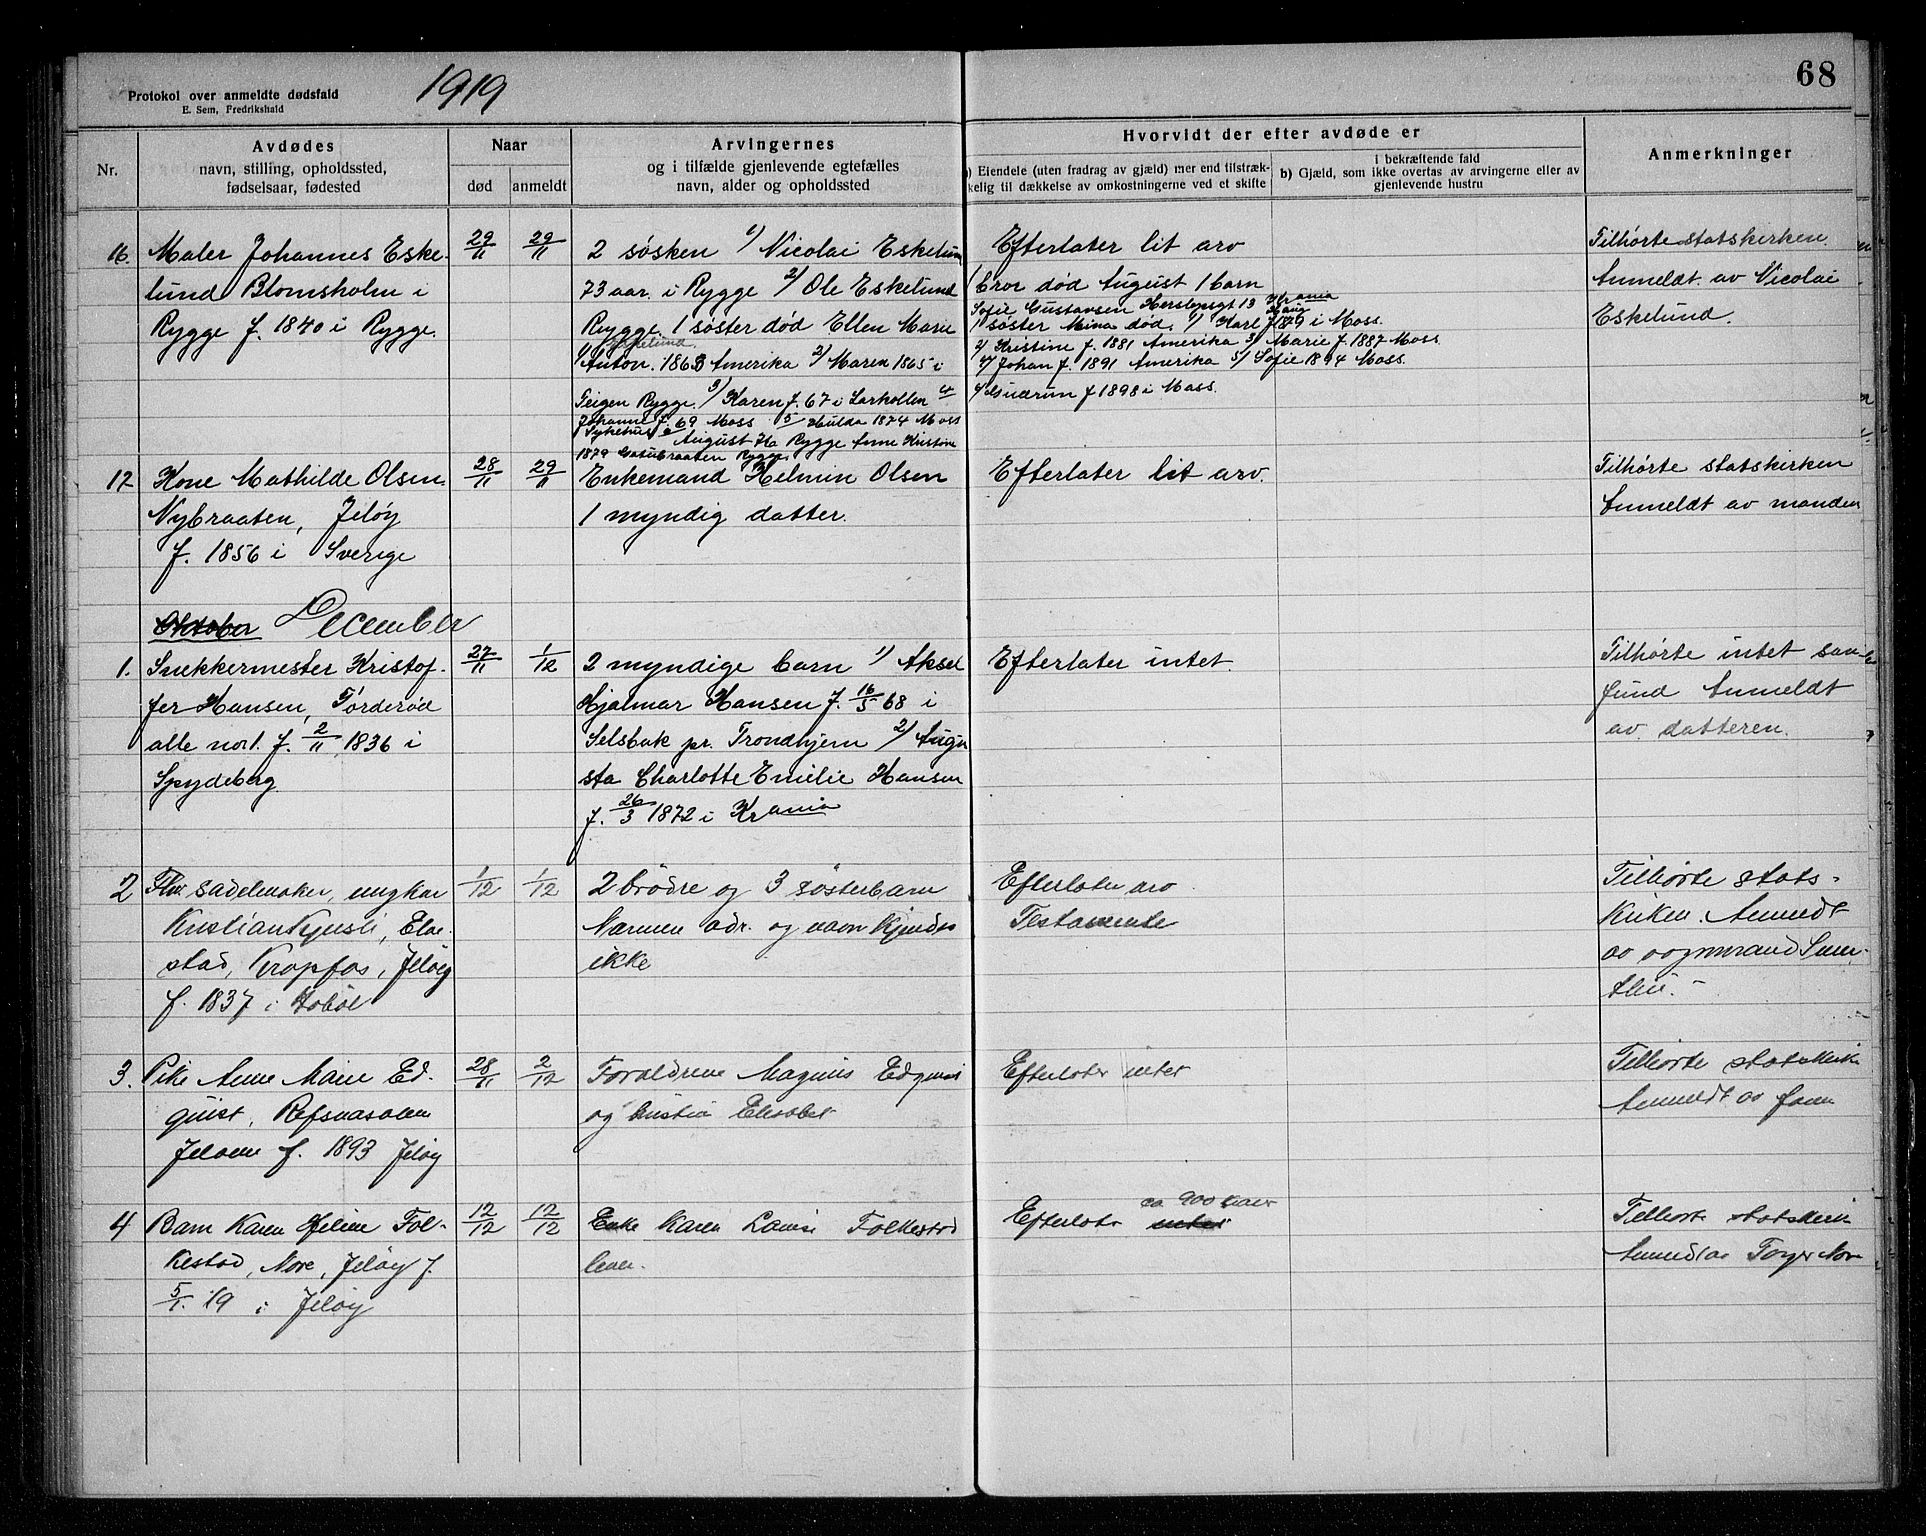 68
Protokol over anmeldte dødsfald
E. Sem, Fredrikshald
1919
Nr.
Avdødes
navn, stilling, opholdssted,
fødselsaar, fødested
Naar
død
anmeldt
Arvingernes
og i tilfælde gjenlevende egtefælles
navn, alder og opholdssted
Hvorvidt der efter avdøde er
a) Eiendele (uten fradrag av gjæld) mer end tilstræk-
kelig til dækkelse av omkostningerne ved et skifte
i bekræftende fald
b) Gjæld, som ikke overtas av arvingerne eller av
gjenlevende hustru
Anmerkninger
16. Maler Johannes Eske-
lund Blomsholm i
Rygge f. 1840 i Rygge.
29/11
29/11
2 søsken 1) Nicolai Eskelun
73 aar. i Rygge 2) Ole Eskelund
Rygge. 1 søster død Ellen Marie
Eskelund.
1) Anton. 1863 Amerika 2) Maren 1865 i
Teigen Rygge. 3) Karen f. 67 i Larkollen 4
Johanne f. 69 Moss 5 Hulda 1874 Moss
Sykehus 6 August 76 Rygge Anne Kristine
1879 Rygge.
Efterlater lit arv
1 bror død August 1 barn
Sofie Gustavsen Herslebsgt 13 Krania
1 søster Mina død. 1) Karl f. 1879 i Moss.
2) Kristine f. 1881 Amerika 3) Marie f. 1887 Moss
4) Johan f. 1891 Amerika 5) Sofie 1894 Moss.
Gudrun f 1898 i Moss.
Tilhørte statskirken.
Anmeldt av Nicolai
Eskelund.
17 Kone Mathilde Olsen.
Nybraaten, Jeløy
f. 1856 i Sverige
28/11
29/11
Enkemand Helmin Olsen
1 myndig datter.
Efterlater lit arv.
Tilhørte statskirken
Anmeldt av manden
Oktober December
1. Snekkermester Kristof-
fer Hansen, Tørderød
alle nor. f. 2/11 1836 i
Spydeberg
27/11
1/12
2 myndige barn 1) Aksel
Hjalmar Hansen f. 16/5 68 i
Selsbak pr. Trondhjem 2) Augu
sta Charlotte Emilie Hansen
f. 26/3 1872 i Krania
Efterlater intet.
Tilhørte intet sam-
fund Anmeldt
av datteren.
2 Fhv. sadelmaker, ungkar
Kristian Kjusli, Elve-
stad, Kropfos, Jeløy
f. 1837 i Hobøl
1/12
1/12
2 brødre og 3 søsterbarn
Nærmere adr. og navn kjendes
ikke
Efterlater arv
Testamente
Tilhørte stats-
kirken. Anmeldt
av vognmand
3. Pike Anne Marie Ed-
quist, Refsnesalleen
Jeløen f. 1893 Jeløy
28/11
2/12
Forældrene Magnus Edquist
og hustru Elisabet
Efterlater intet
Tilhørte statskirk
Anmeldt av faren
4 Barn Karen Helene Fol-
kestad, Nore, Jeløy f.
5/1. 19 i Jeløy
12/12
12/12
Enke Karen Louise Folkestad
lever.
ca 900 kroner
Efterlater intet
Tilhørte statskirk
Anmeldt av